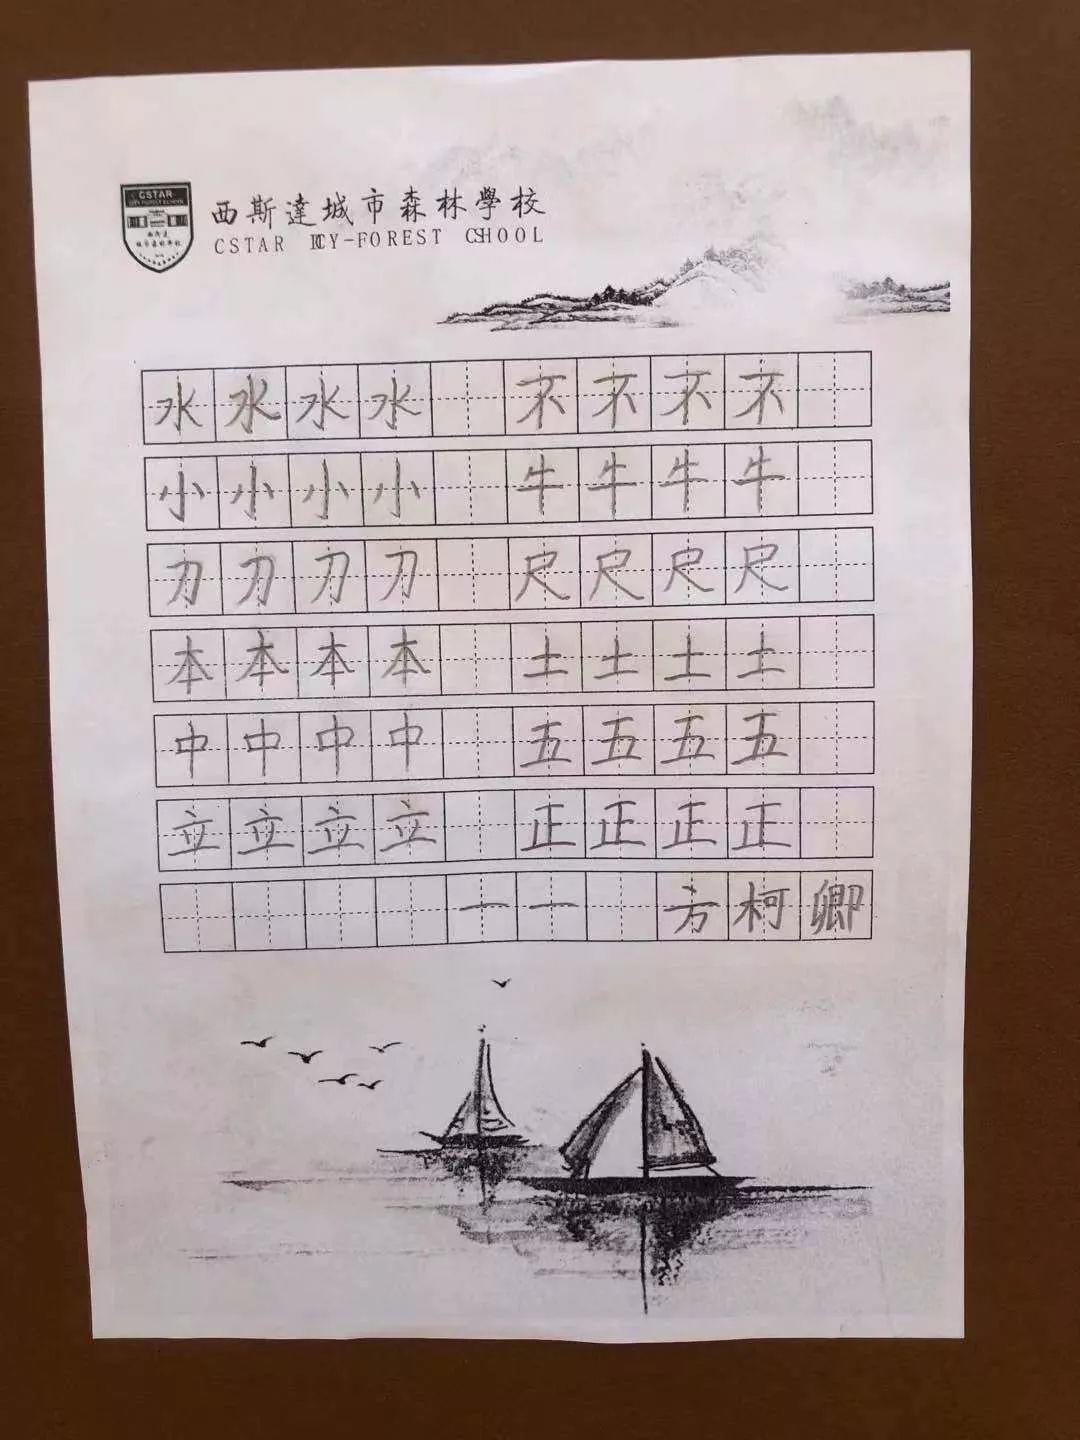 CSTAR
西斯達城市森林學校
CSTAR ICY-FOREST CSHOOL
水水水水 不不不不
小小小小 牛牛牛牛
刀刀刀刀 尺尺尺尺
本本本本 土土土土
中中中中 五五五五
立立立立 正正正正
一一 方柯卿